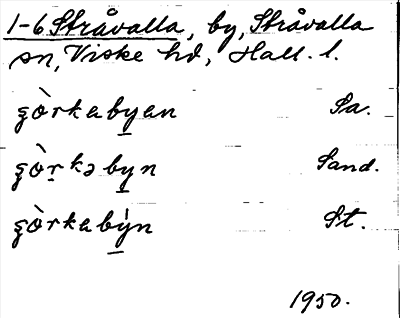 1-6 Stråvalla, by, Stråvalla
sn, Viske hd, Hall. l.
şòrkabyen Sa.
şòrkəbyn Sand.
şòrkabýn St.
1950.